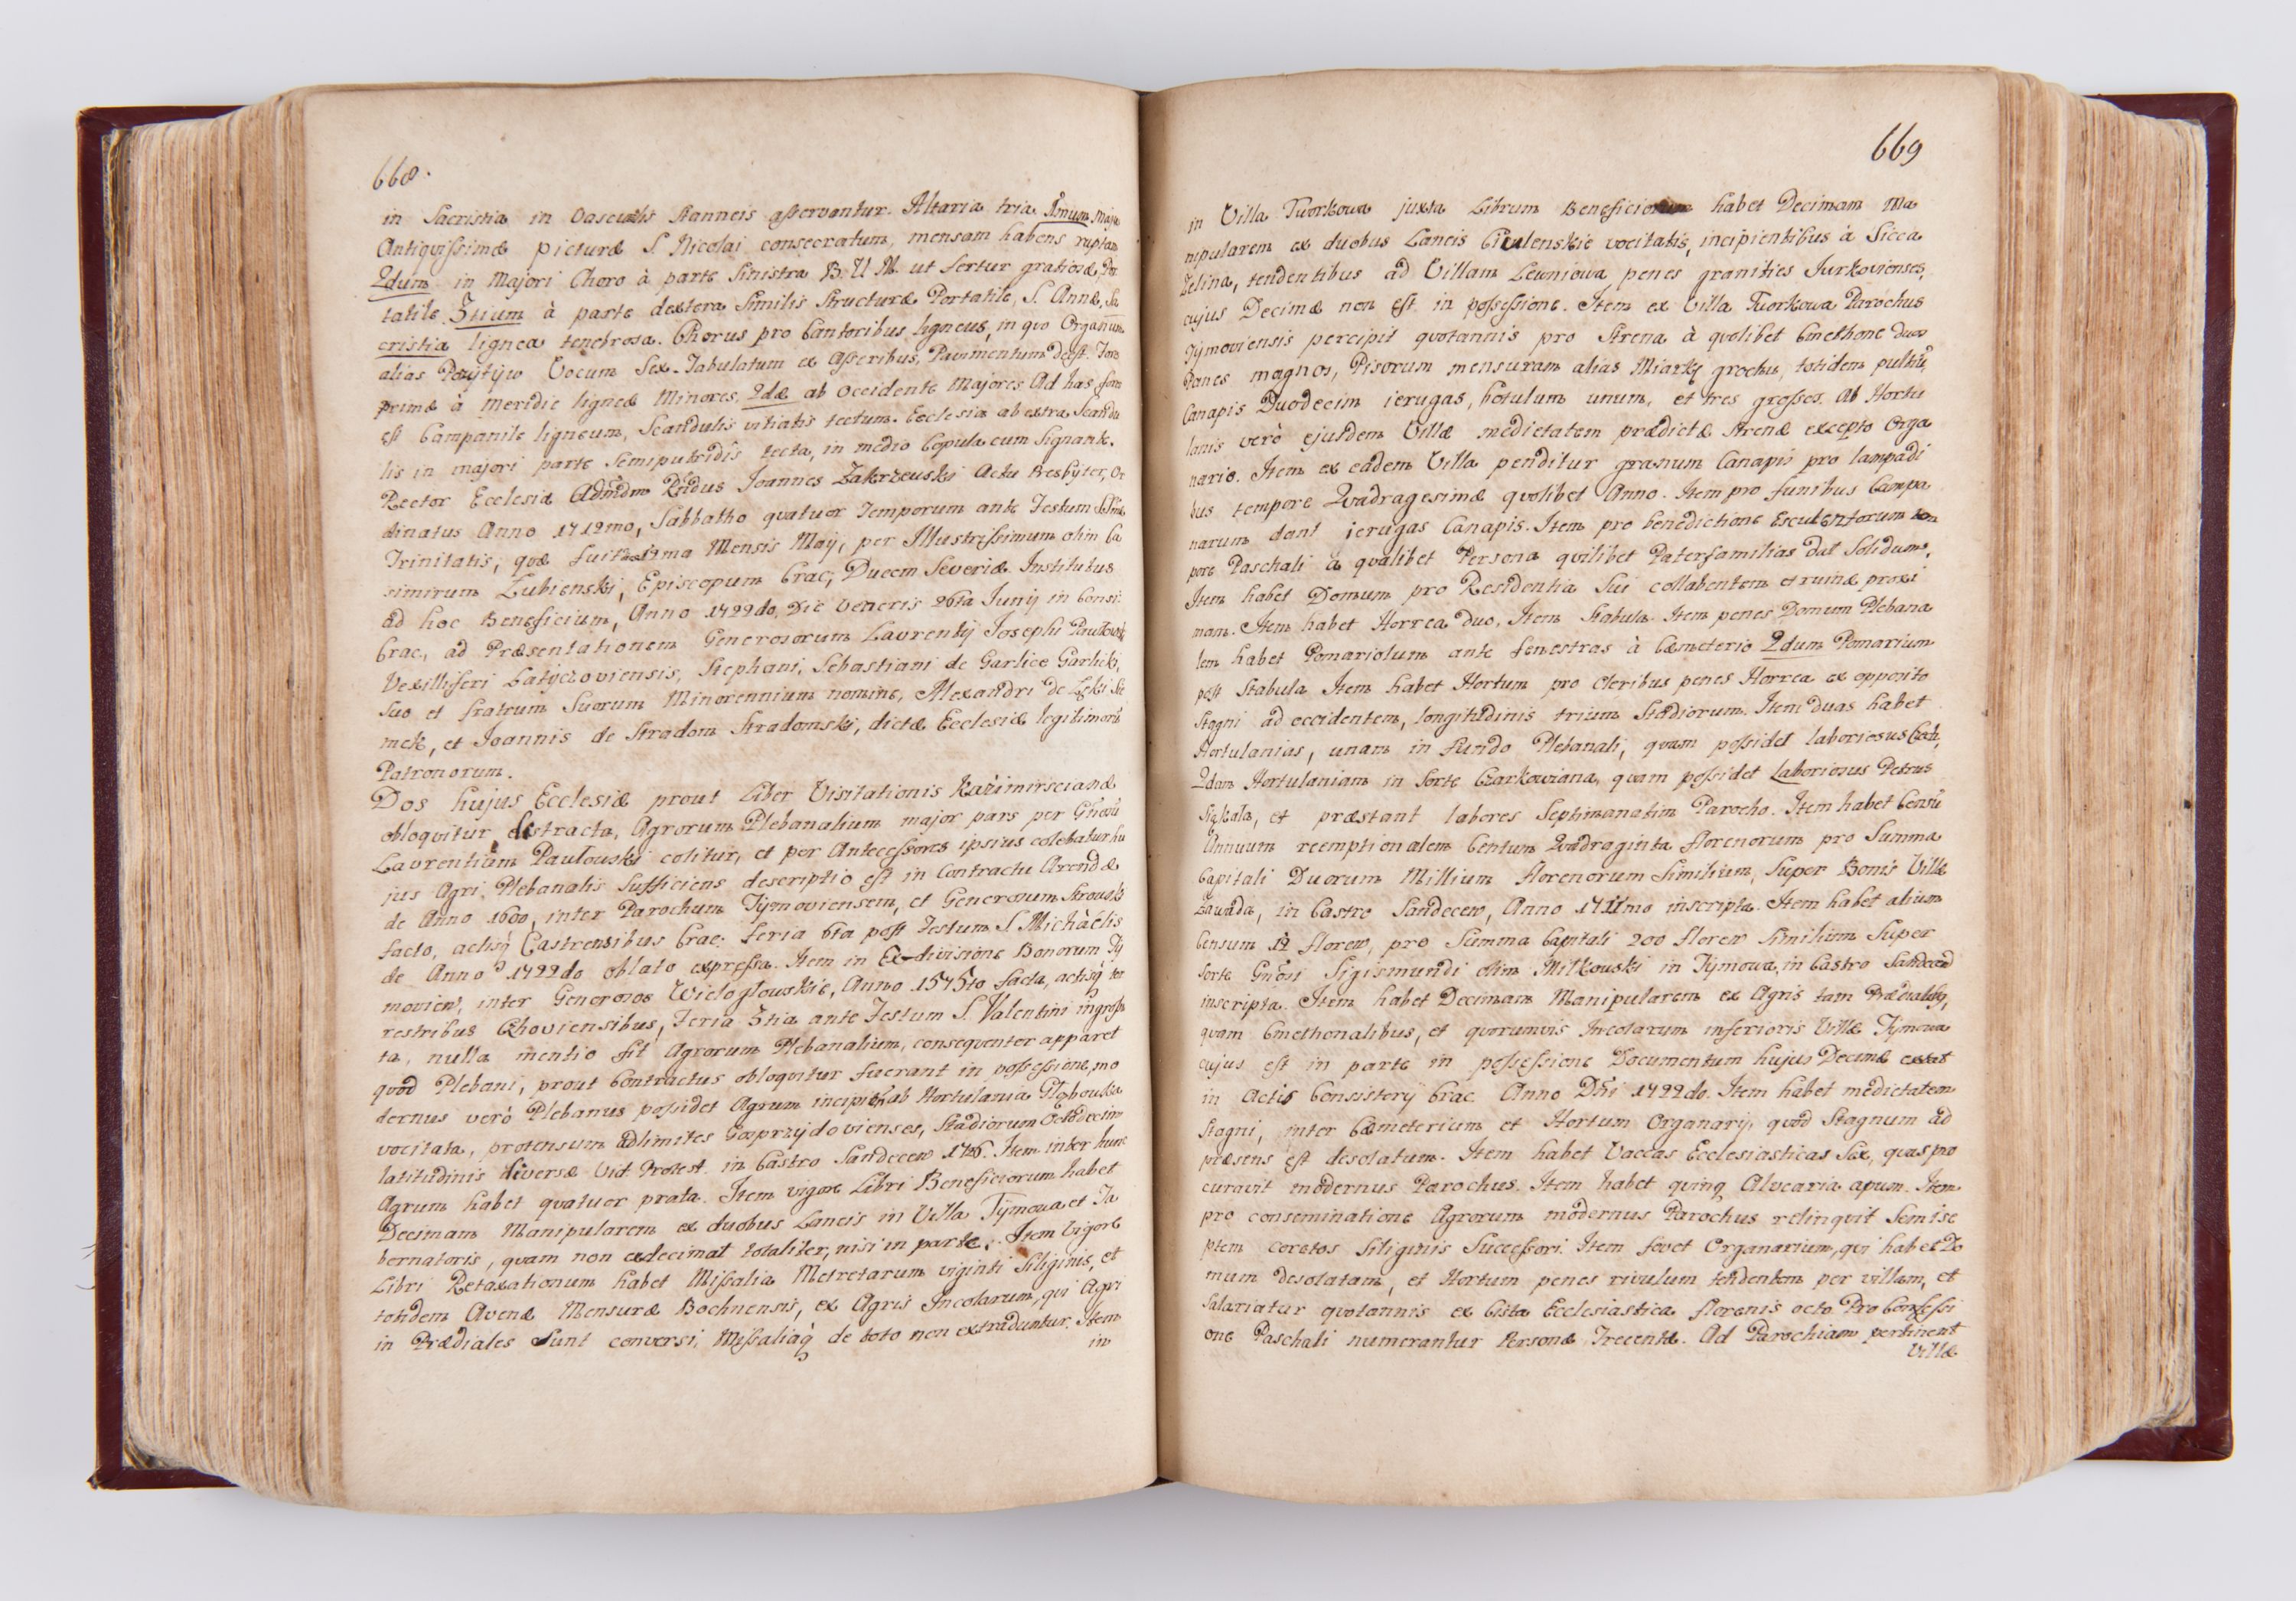 668.
in Sacristia in Vasculis stanneis asservantur. Altaria tria 1mum Maju
Antiquissimæ picturæ S. Nicolai consecratum, mensam habens ruptam
2dum in Majori Choro à parte sinistra B. V. M. ut fertur gratiosæ, Por
tatile 3tium à parte dextera similis structuræ Portatile, S. Annæ, Sa
cristia lignea tenebrosa. Chorus pro Cantoribus ligneus, in quo Organum
alias Pozytyw Vocum Sex. Tabulatum ex Asseribus, Pavimentum deest.
primæ à meridie ligneæ Minores, 2dæ ab Occidente Majores Ad has fores
est Campanile ligneum, Scandulis vitiatis tectum. Ecclesia ab extra Scandu
lis in majori parte semiputridis tecta, in medio Copula cum Signank.
Rector Ecclesiæ Admdm Rndus Joannes Zakrzewski Actu Presbyter, Or
dinatus Anno 1712mo, Sabbatho quatuor Temporum ante Festum SSmæ
Trinitatis, quæ fuit Mensis Maÿ, per Illustrissimum olim Ca
simirum Lubienski, Episcopum Crac; Ducem Severiæ. Institutus
ad hoc Beneficium, Anno 1722do, Die Veneris 26ta Junÿ in Consi:
Crac., ad Præsentationem Generosorum Laurentÿ Josephi Pawłowski
Vexilliferi Latyczoviensis, Stephani, Sebastiani de Garlice Garlicki,
suo et fratrum suorum Minorennium nomine, Alexandri de
mek, et Joannis de Stradom Stradomski, dictæ Ecclesiæ legitimorũ
Patronorum.
Dos hujus Ecclesiæ prout Liber Visitationis Kazimirscianæ
obloquitur distracta, Agrorum Plebanalium major pars per Gnosũ
Laurentium Pawłowski colitur, et per Antecessores ipsius colebatur hu
jus Agri Plebanalis sufficiens descriptio est in Contractu Arendæ
de Anno 1600, inter Parochum Tymoviensem, et Generosum
facto, actisq Castrensibus Crac: feria 6ta post Festum S. Michàëlis
de Anno 1722do oblato expressa. Item in Ex-divisione Bonorum Ty
movien, inter Generosos Wielogłowskie, Anno 1575to facta, actisq ter
restribus Czhoviensibus, Feria 3tia ante Festum S. Valentini ingrossa
ta, nulla mentio fit Agrorum Plebanalium, consequenter apparet
quod Plebani, prout Contractus obloquitur fuerant in possessione, mo
dernus verò Plebanus possidet Agrum incipi ab Hortulania Głębowska
vocitata, protensum ad limites Gosprzydovienses, Stadiorum Octodecim
latitudinis diversæ Vid. Protest. in Castro Sandecen 1726. Item inter hunc
Agrum habet quatuor prata. Item vigore Libri Beneficiorum habet
Decimam Manipularem ex duobus Laneis in Villa Tymowa et Ta
bernatoris, quam non exdecimat totaliter, nisi in parte. Item vigore
Libri Retaxationum habet Missalia Metretarum viginti Siliginis, et
totidem Avenæ Mensuræ Bochnensis, ex Agris Incolarum, qui Agri
in Prædiales sunt conversi, Missaliaq de toto non extraduntur. Item
in
669
in Villa Tworkowa juxta Librum Beneficiorum habet Decimam Ma
nipularem ex duobus Laneis vocitatis, incipientibus à Sicca
Zelina, tendentibus ad Villam Lewniowa penes granities Jurkovienses,
cujus Decimæ non est in possessione. Item ex Villa Tworkowa Parochus
Tymoviensis percipit quotannis pro Strena à quolibet Cmethone duos
Panes magnos, Pisorum mensuram alias Miarkę grochu, totidem pultiũ,
Canapis Duodecim ierugas, botulum unum, et tres grossos. Ab Hortu
lanis verò ejusdem Villæ medietatem prædictæ Strenæ excepto Orga
nario. Item ex eadem Villa penditur granum Canapis pro lampadi
bus tempore Quadragesimæ quolibet Anno. Item pro funibus Campa
narum dant ierugas Canapis. Item pro benedictione Esculentorum tem
pore Paschali à qualibet Persona quilibet Paterfamilias dat Solidum,
Item habet Domum pro Residentia Sui collabentem et ruinæ proxi
mam. Item habet Horrea duo, Item Stabula. Item penes Domum Plebana
lem habet Pomariolum ante fenestras à Cæmeterio 2dum Pomarium
post Stabula Item habet Hortum pro Oleribus penes Horrea ex opposito
Stagni ad occidentem, longitudinis trium Stadiorum. Item duas habet
Hortulanias, unam in fundo Plebanali, quam possidet laboriosus
2dam Hortulaniam in sorte Czarkowiana, quam possidet Laboriosus Petrus
et præstant labores Septimanatim Parocho. Item habet Censũ
Annuum reemptionalem Centum Quadraginta florenorum pro Summa
Capitali Duorum Millium florenorum Similium, Super Bonis Villæ
Zawada, in Castro Sandecen, Anno inscripta. Item habet alium
Censum 12 floren, pro Summa Capitali 200 floren similium Super
sorte Gnosi Sigismundi olim Miłkowski in Tymowa, in Castro
inscripta. Item habet Decimam Manipularem ex Agris tam Prædialibq,
quam Cmethonalibus, et quorumvis Incolarum inferioris Villæ Tymowa
cujus est in parte in possessione Documentum hujus Decimæ extat
in Actis Consistorÿ Crac. Anno Dñi 1722do. Item habet medietatem
Stagni, inter Cæmeterium et Hortum Organarÿ, quod Stagnum ad
præsens est desolatum. Item habet Vaccas Ecclesiasticas Sex, quas pro
curavit modernus Parochus. Item habet quinq Alvearia apum. Item
pro conseminatione Agrorum modernus Parochus relinquit Semise
ptem coretos Siliginis Successori. Item fovet Organarium, qui habet Do
mum desolatam, et Hortum penes rivulum tendentem per villam, et
Salariatur quotannis ex Cista Ecclesiastica florenis octo Pro Confessi
one Paschali numerantur Personæ Trecentæ. Ad Parochiam pertinent
Villæ